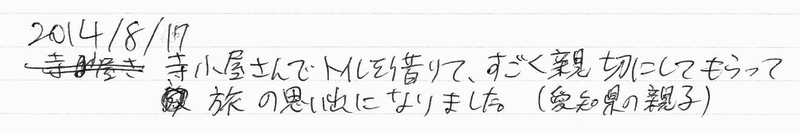 2014/8/17
寺小屋さんでトイレを借りて、すごく親切にしてもらって
旅の思い出になりました。(愛知県の親子)